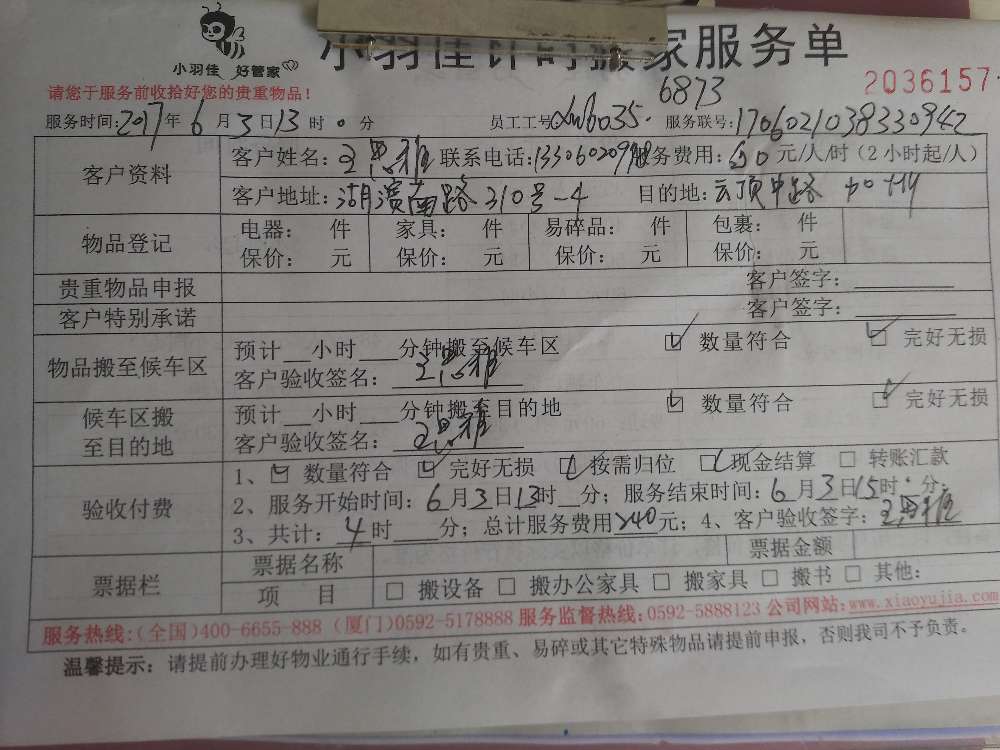 小羽佳 好管家
小羽佳计时搬家服务单
2036157
请您于服务前收拾好您的贵重物品！
6873
服务时间:2017年6月3日13时0分 员工工号: 6035. 服务联号:1706021038330942
客户资料 客户姓名:王思雅 联系电话: 服务费用:60元/人/时（2小时起/人）
客户地址:湖滨南路310号-4 目的地:云顶中路
物品登记 电器： 件 家具： 件 易碎品： 件 包裹： 件
保价： 元 保价： 元 保价： 元 保价： 元
贵重物品申报 客户签字：
客户特别承诺 客户签字：
物品搬至候车区 预计__小时___分钟搬至候车区 ☑ 数量符合 ☑ 完好无损
客户验收签名：王思雅
候车区搬至目的地 预计__小时___分钟搬至目的地 ☑ 数量符合 ☑ 完好无损
客户验收签名：王思雅
验收付费 1、☑ 数量符合 ☑ 完好无损 ☑ 按需归位 ☑ 现金结算 □ 转账汇款
2、服务开始时间：6月3日13时__分；服务结束时间：6月3日15时 分；
3、共计：4时____分；总计服务费用240元；4、客户验收签字：王思雅
票据栏 票据名称 票据金额
项 目 □ 搬设备 □ 搬办公家具 □ 搬家具 □ 搬书 □ 其他：
服务热线:(全国)400-6655-888 (厦门)0592-5178888 服务监督热线:0592-5888123 公司网站:www.xiaoyujia.com
温馨提示：请提前办理好物业通行手续，如有贵重、易碎或其它特殊物品请提前申报，否则我司不予负责。